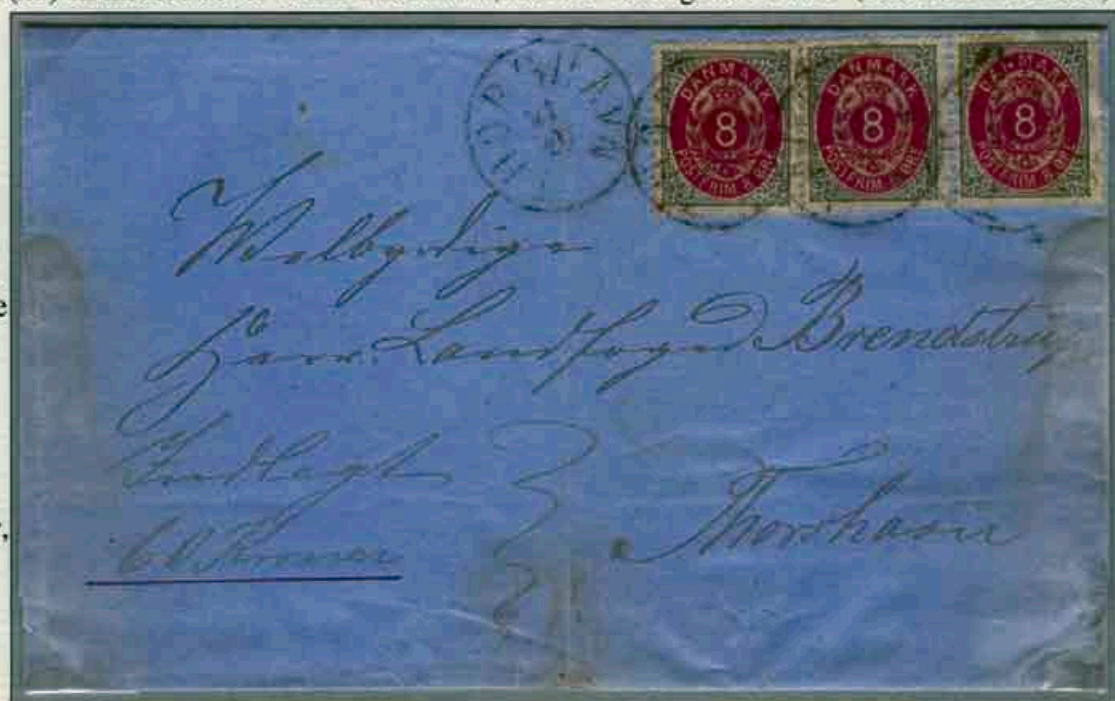 THORSHAVN
DANMARK
8
POSTFRIM 8 ØRE
DANMARK
8
POSTFRIM 8 ØRE
DANMARK
8
POSTFRIM 8 ØRE
Herr Landfoged Brendstrup
Indlagt
60 Kroner
Thorshavn